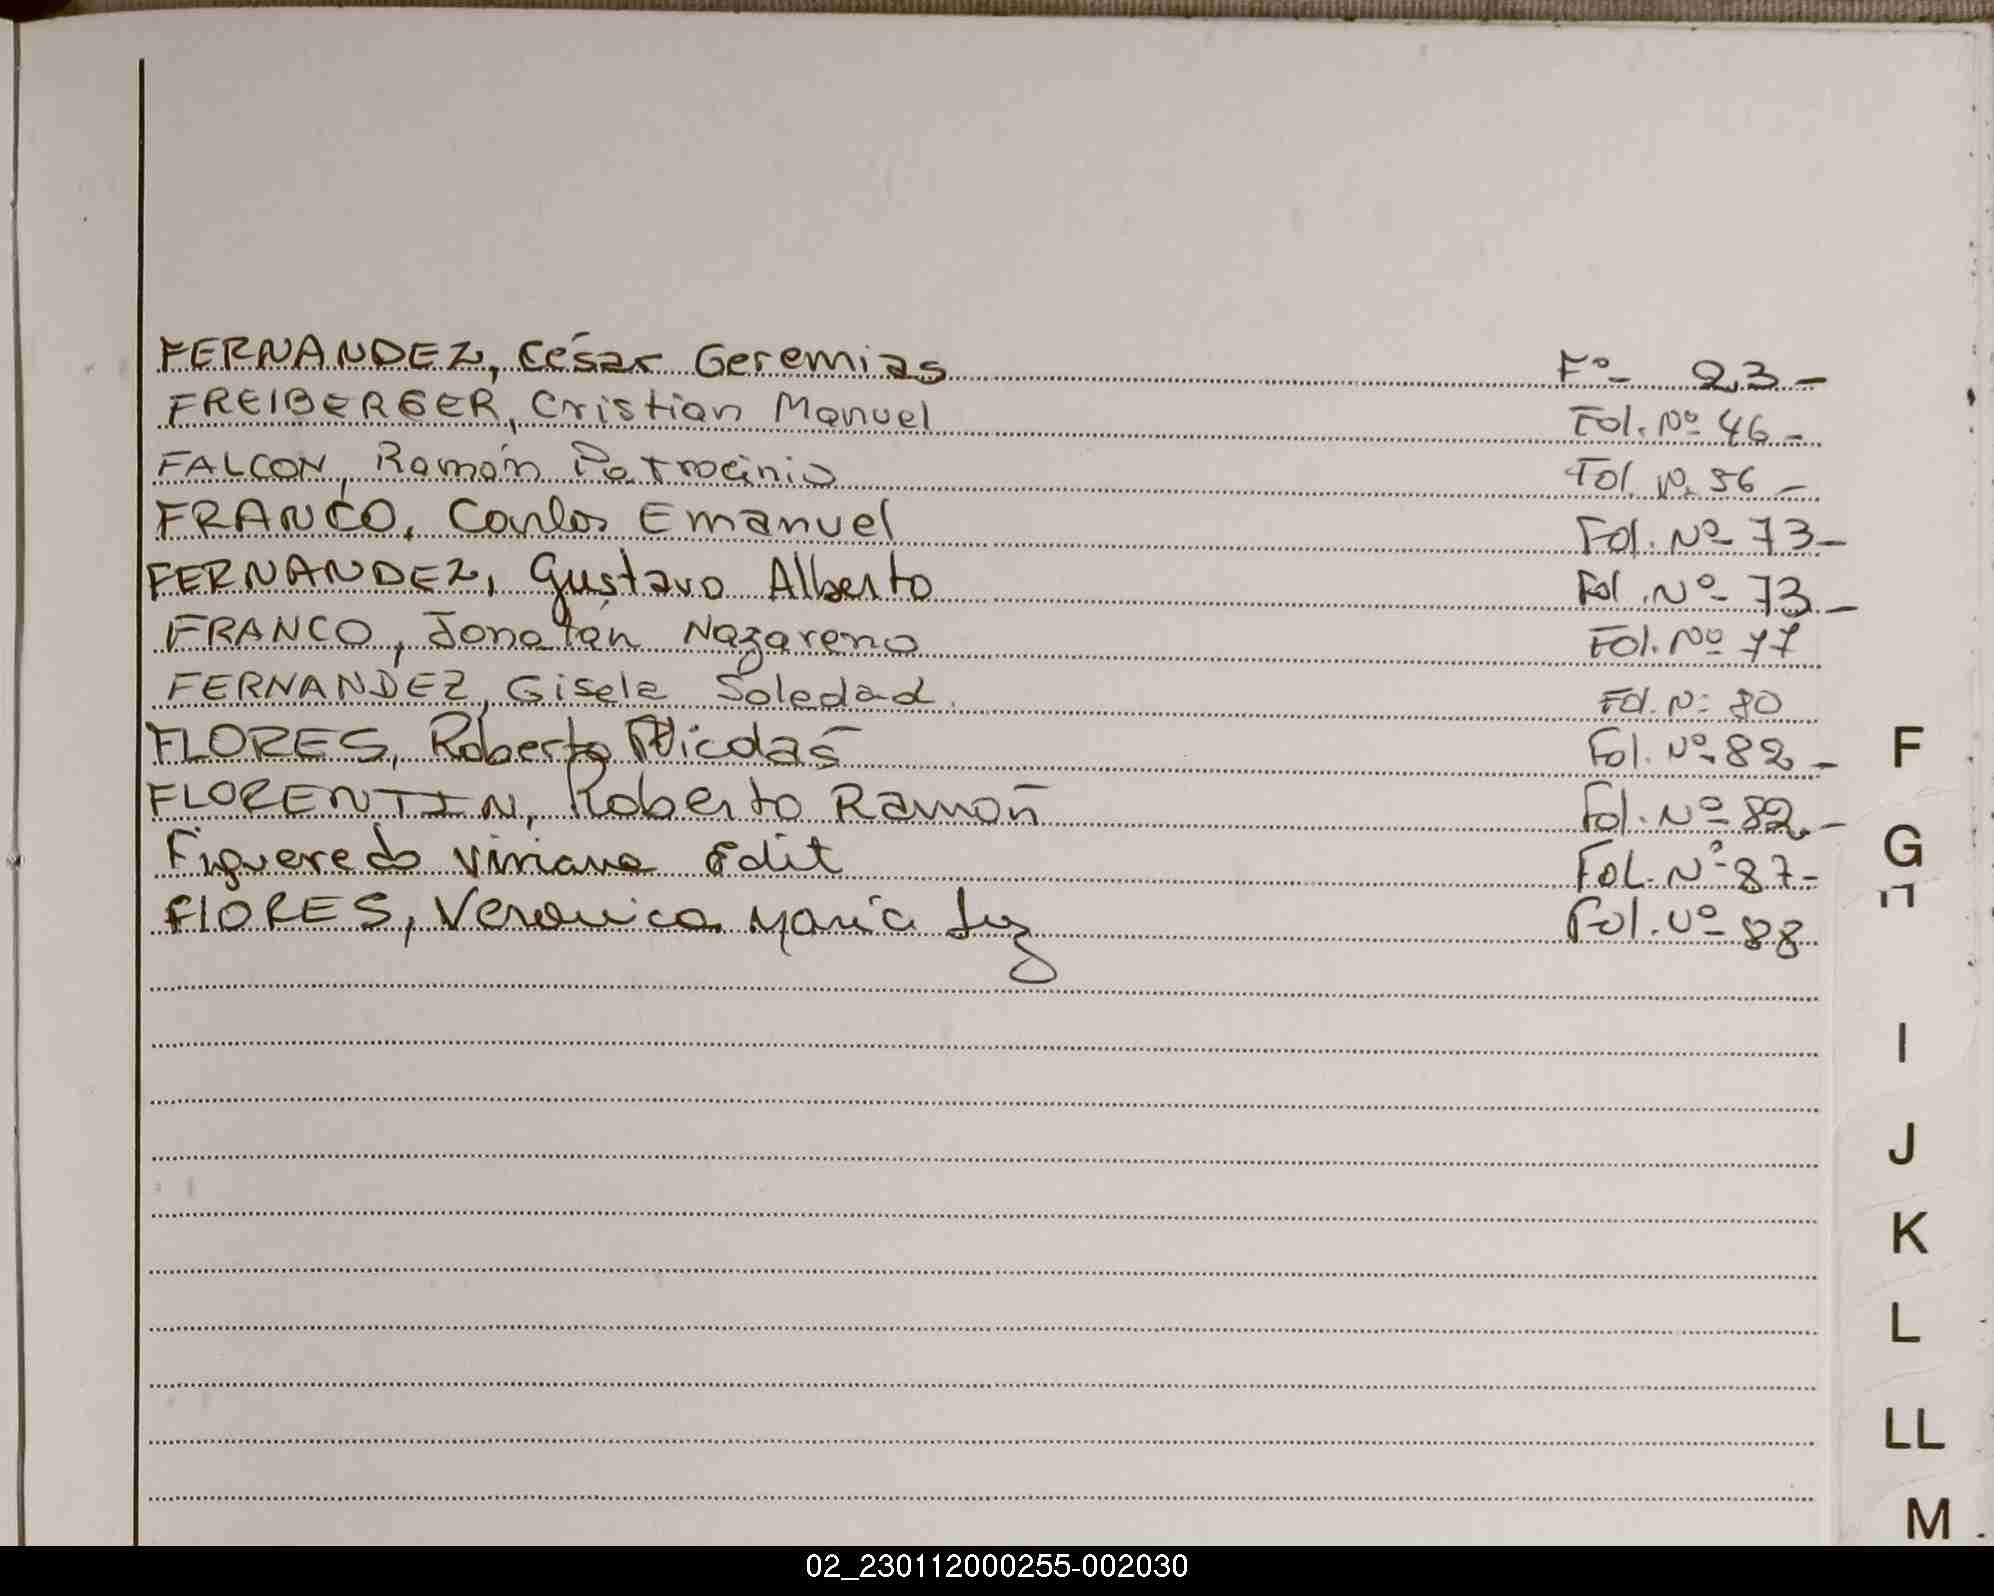 FERNANDEZ, César Geremias Fº 23-
FREIBERGER, Cristian Manuel Fol. Nº 46-
FALCON, Ramón Patrocinio Fol. Nº 56-
FRANCO, Carlos Emanuel Fol. Nº 73-
FERNANDEZ, Gustavo Alberto Fol. Nº 73-
FRANCO, Jonatán Nazareno Fol. Nº 77
FERNANDEZ, Gisela Soledad. Fol. Nº 80
FLORES, Roberto Nicolás Fol. Nº 82-
FLORENTIN, Roberto Ramón Fol. Nº 82.-
Figueredo Viviana Edit Fol. Nº 87-
FLORES, Veronica Maria Luz Fol. Nº 88
F
G
I
J
K
L
LL
M
02_230112000255-002030